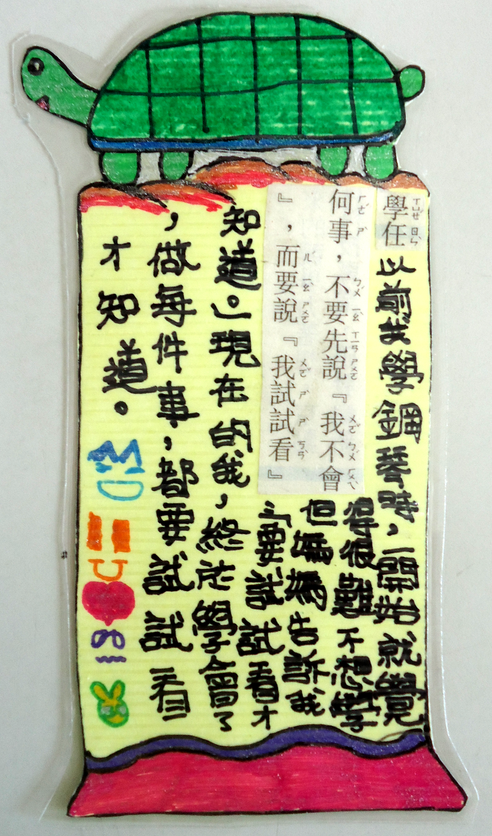 學任
何事，不要先說『我不會
』，而要說『我試試看』
以前我學鋼琴時，一開始就覺
得很難不想學
但媽媽告訴我
「要試試看才
知道。」現在的我，終於學會了
，做每件事，都要試試看
才知道。